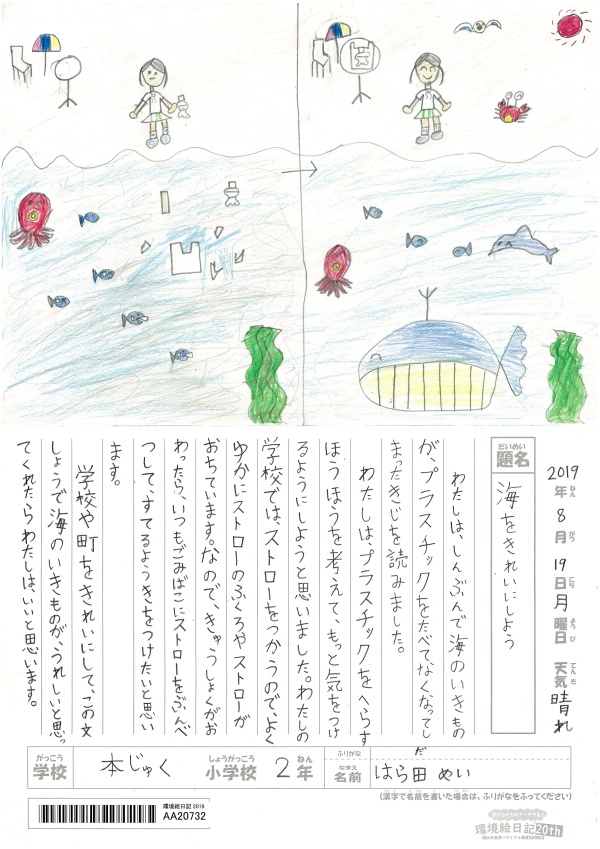 2019年8月19日月曜日 天気 晴れ
ねん がつ にち ようび てんき
だいめい
題名
海をきれいにしよう
わたしは、しんぶんで海のいきもの
が、プラスチックをたべてなくなってし
まったきじを読みました。
わたしは、プラスチックをへらす
ほうほうを考えて、もっと気をつけ
るようにしようと思いました。わたしの
学校では、ストローをつかうので、よく
ゆかにストローのふくろやストローが
おちています。なので、きゅうしょくがお
わったら、いつもごみばこにストローをぶんべ
つして、すてるようきをつけたいと思い
ます。
学校や町をきれいにして、この文
しょうで海のいきものが、うれしいと思っ
てくれたらわたしは、いいと思います。
がっこう しょうがっこう ねん
学校 本じゅく 小学校 2年
ふりがな だ
なまえ
名前 はら田 めい
(漢字で名前を書いた場合は、ふりがなをふってください)
環境絵日記 2019
AA20732
環境絵日記 20th